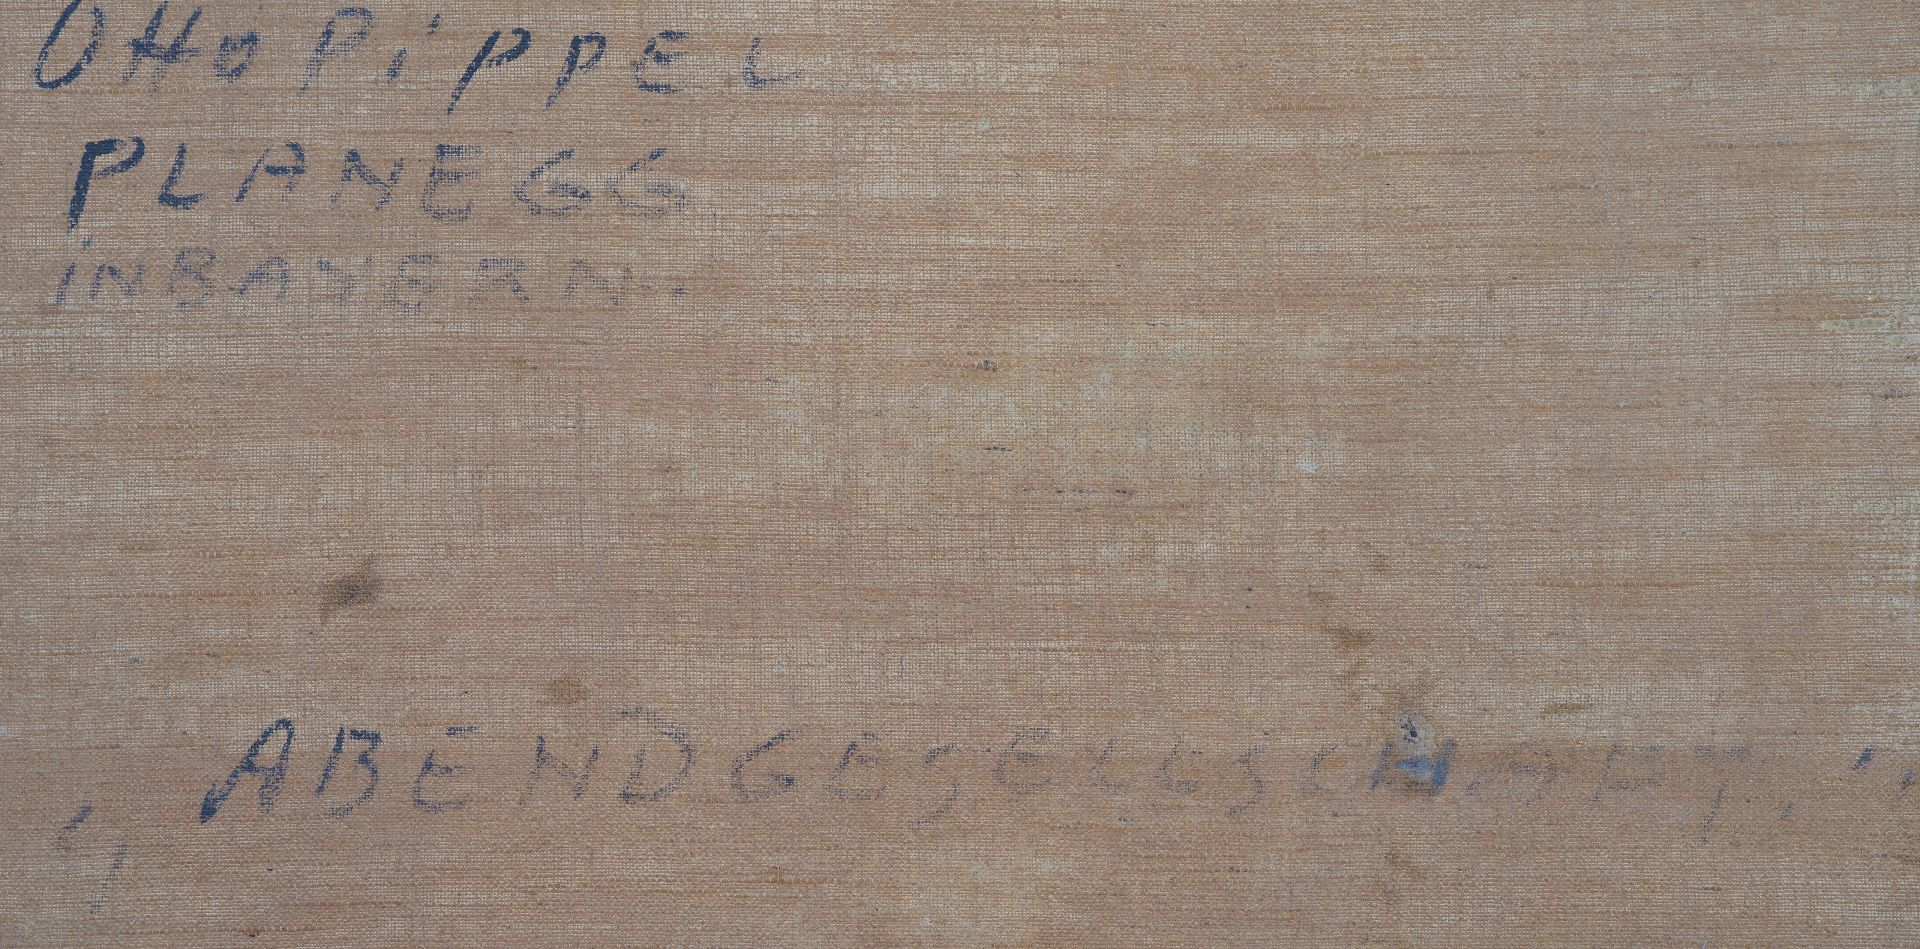 Otto PiPPEL
PLANEGG
iN BAYERN.
„ABENDGESELLSCHAFT."